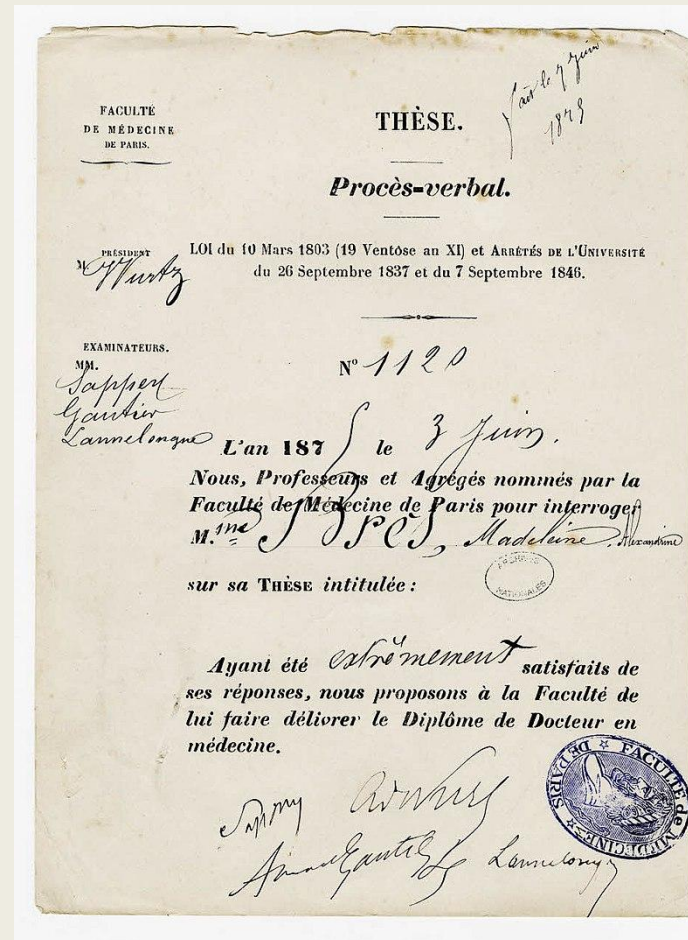 fait le 7 Juin
1875
FACULTÉ
DE MÉDECINE
DE PARIS.
THÈSE.
Procès-verbal.
PRÉSIDENT
M. Wurtz
LOI du 10 Mars 1803 (19 Ventôse an XI) et ARRÊTÉS DE L'UNIVERSITÉ
du 26 Septembre 1837 et du 7 Septembre 1846.
EXAMINATEURS.
MM.
Sappey
Gautier
Lannelongue
N° 1120
L'an 1875 le 3 Juin.
Nous, Professeurs et Agrégés nommés par la
Faculté de Médecine de Paris pour interroger
M.me Brès, Madeleine, Alexandrine
ARCHIVES
NATIONALES
sur sa THÈSE intitulée :
Ayant été extrêmement satisfaits de
ses réponses, nous proposons à la Faculté de
lui faire délivrer le Diplôme de Docteur en
médecine.
FACULTÉ de MÉDECINE
DE PARIS
Sappey
Ad Wurtz
Armand Gautier
Lannelongue